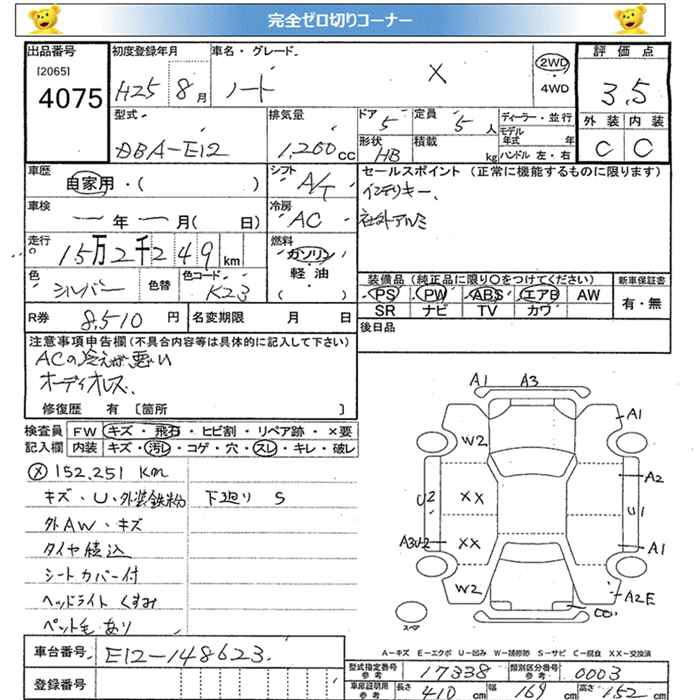 完全ゼロ切りコーナー
出品番号 初度登録年月 車名・グレード 評価点
[2065] 4075 H25 8月 ノート X 2WD・4WD 3.5
外装 内装
C C
型式 排気量 ドア 定員 ディーラー・並行
DBA-E12 1,200cc 5 5人 モデル年式 年
形状 積載 ハンドル 左・右
HB kg
車歴 シフト セールスポイント (正常に機能するものに限ります)
自家用・( ) A/T インテリキー、
車検 冷房 社外アルミ
ー年ー月( 日) AC
走行 燃料
15万2千249km ガソリン・軽油( )
色 色替 色コード 装備品 (純正品に限り〇をつけてください) 新車保証書
シルバー K23 PS PW ABS エアB AW 有・無
SR ナビ TV カワ
R券 8,510円 名変期限 月 日 後日品
注意事項申告欄(不具合内容等は具体的に記入して下さい)
ACの冷えが悪い
オーディオレス、
修復歴 有 [箇所 ]
検査員 FW キズ・飛石・ヒビ割・リペア跡・×要
記入欄 内装 キズ・汚レ・コゲ・穴・スレ・キレ・破レ
X 152.251 Km
キズ・U・外装鉄粉 下廻り S
外AW・キズ
タイヤ積込
シートカバー付
ヘッドライトくすみ
ペット毛あり
A1 A3
A1
W2
A2
U2 XX U1
A3U2 XX A1
W2 A2E
スペア
A-キズ E-エクボ U-凹み W-補修跡 S-サビ C-腐食 XX-交換済
車台番号 E12-148623
登録番号
型式指定番号 参考 17338 類別区分番号 参考 0003
車庫証明用 参考 長さ 410cm 幅 169cm 高さ 152cm